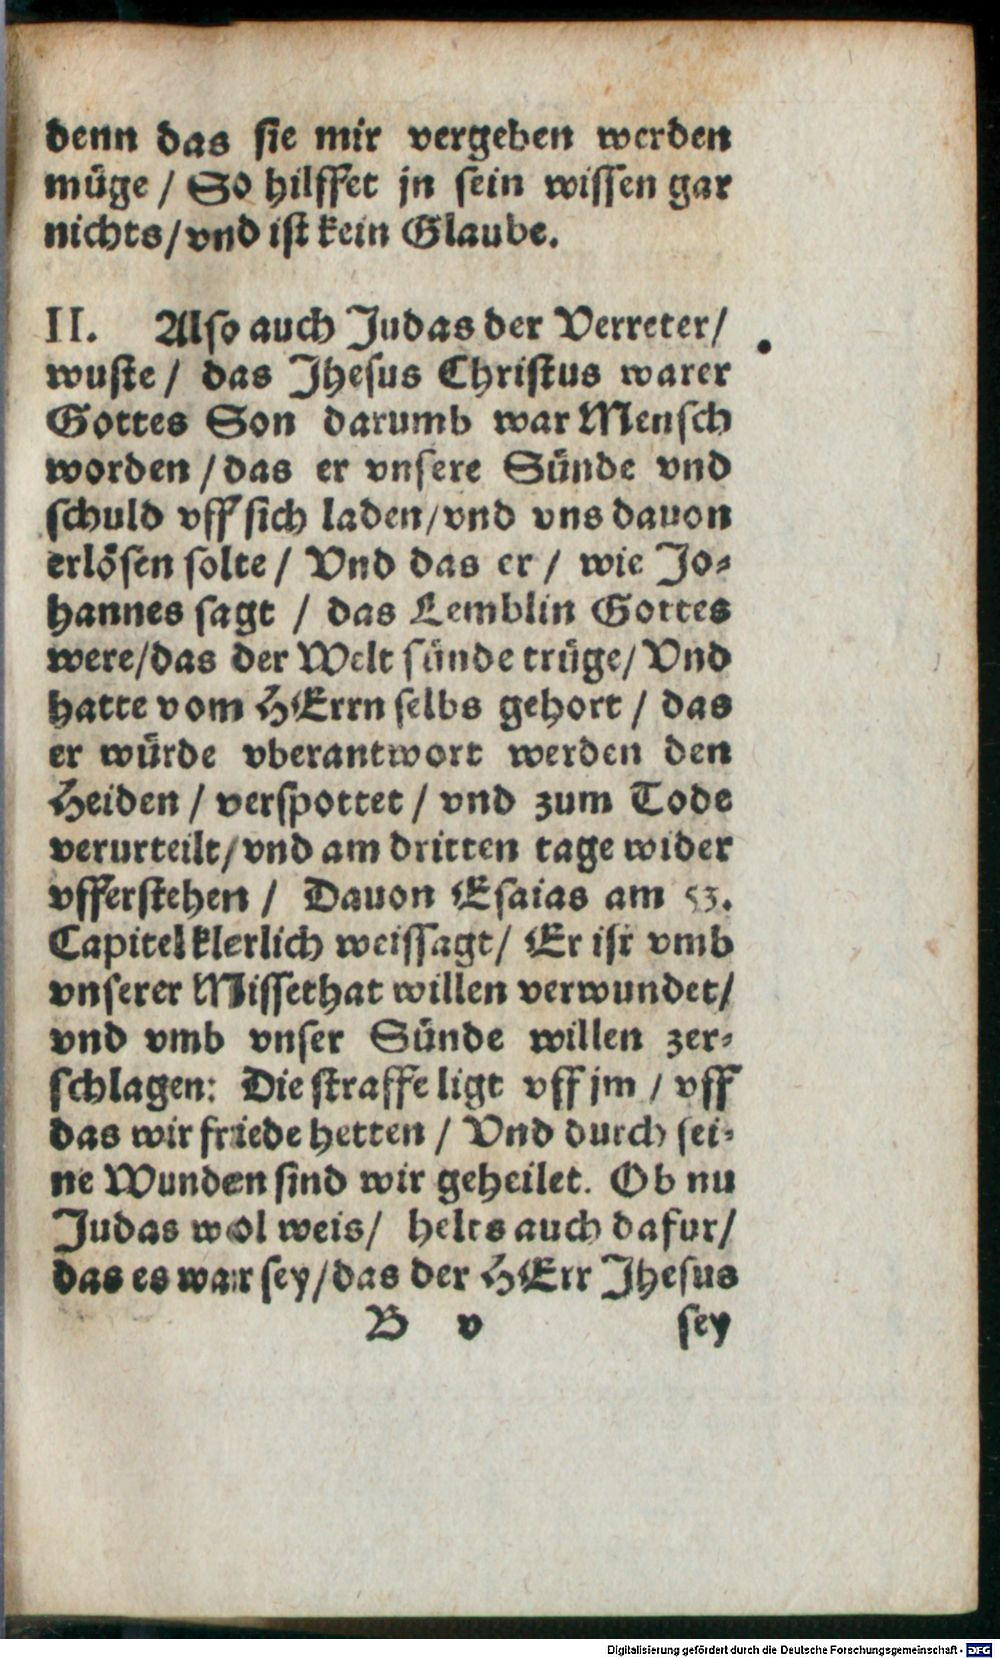 denn das sie mir vergeben werden
müge / So hilffet jn sein wissen gar
nichts/vnd ist kein Glaube.
II. Also auch Judas der Verreter/
wuste / das Jhesus Christus warer
Gottes Son darumb war Mensch
worden / das er vnsere Sünde vnd
schuld vff sich laden/vnd vns dauon
erlösen solte / Vnd das er / wie Jo-
hannes sagt / das Lemblin Gottes
were/das der Welt sünde trüge/ Vnd
hatte vom HErrn selbs gehort / das
er würde vberantwort werden den
Heiden / verspottet / vnd zum Tode
verurteilt/vnd am dritten tage wider
vfferstehen / Dauon Esaias am 53.
Capitel klerlich weissagt/ Er ist vmb
vnserer Missethat willen verwundet/
vnd vmb vnser Sünde willen zer-
schlagen: Die straffe ligt vff jm / vff
das wir friede hetten / Vnd durch sei-
ne Wunden sind wir geheilet. Ob nu
Judas wol weis/ helts auch dafur/
das es war sey/das der HErr Jhesus
B v sey
Digitalisierung gefördert durch die Deutsche Forschungsgemeinschaft - DFG